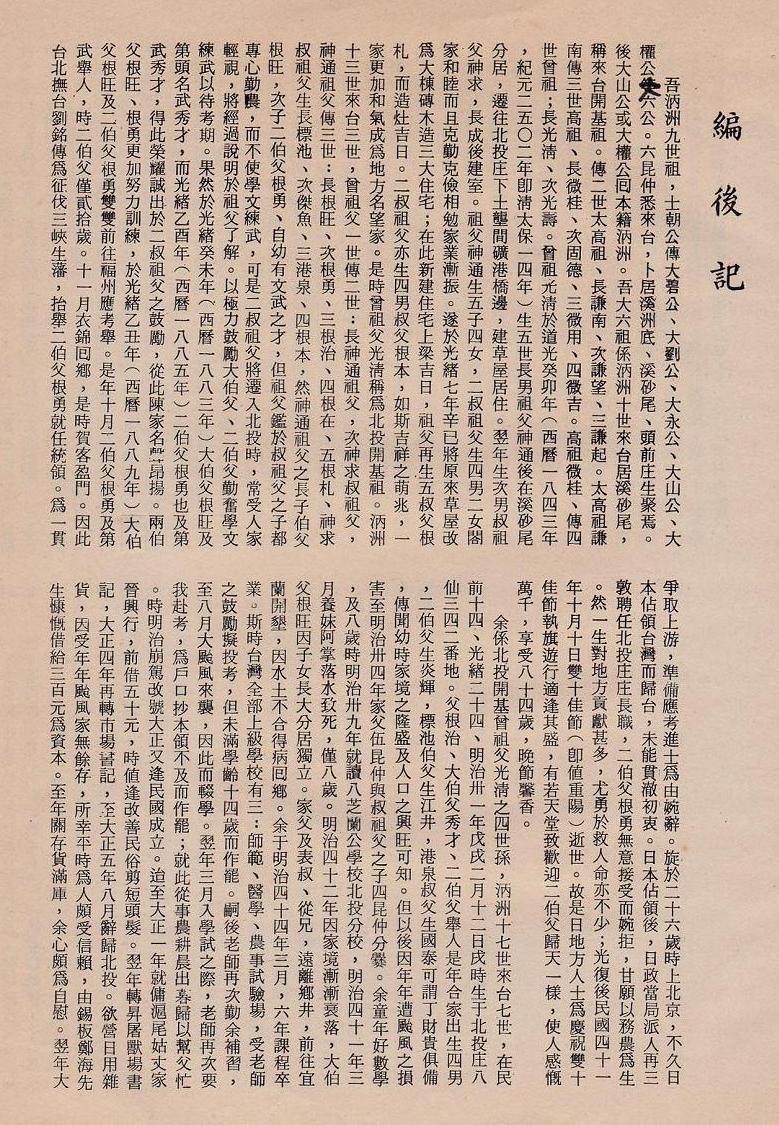 編後記
吾汭洲九世祖，士朝公傳大碧公、大劉公、大永公、大山公、大
權公六公。六昆仲悉來台，卜居溪洲底、溪砂尾、頭前庄生聚焉。
後大山公或大權公囘本籍汭洲。吾大六祖係汭洲十世來台居溪砂尾，
稱來台開基祖。傳二世太高祖、長謙南、次謙望、三謙起。太高祖謙
南傳三世高祖、長微桂、次固德、三微用、四微吉。高祖微桂、傳四
世曾祖；長光淸、次光壽。曾祖光淸於道光癸卯年（西曆一八四三年
，紀元二五０二年卽淸太保一四年）生五世長男祖父神通後在溪砂尾
分居，遷往北投庄下土壟間礦港橋邊，建草屋居住。翌年生次男叔祖
父神求，長成後建室。祖父神通生五子四女，二叔祖父生四男二女闔
家和睦而且克勤克儉相勉家業漸振。遂於光緒七年辛巳將原來草屋改
爲大棟磚木造三大住宅；在此新建住宅上梁吉日，祖父再生五叔父根
札，而造灶吉日。二叔祖父亦生四男叔父根本，如斯吉祥之萌兆，一
家更加和氣成爲地方名望家。是時曾祖父光淸稱爲北投開基祖。汭洲
十三世來台三世，曾祖父一世傳二世：長神通祖父，次神求叔祖父，
神通祖父傳三世：長根旺、次根勇、三根治、四根在、五根札、神求
叔祖父生長標池、次傑魚、三港泉、四根本，然神通祖父之長子伯父
根旺，次子二伯父根勇、自幼有文武之才，但祖父鑑於叔祖父之子都
專心勤農，而不使學文練武，可是二叔祖父將遷入北投時，常受人家
輕視，將經過說明於祖父了解。以極力鼓勵大伯父、二伯父勤奮學文
練武以待考期。果然於光緒癸未年（西曆一八八三年）大伯父根旺及
第頭名武秀才，而光緒乙酉年（西曆一八八五年）二伯父根勇也及第
武秀才，得此榮耀誠出於二叔祖父之鼓勵，從此陳家名聲昻揚。兩伯
父根旺、根勇更加努力訓練，於光緒乙丑年（西曆一八八九年）大伯
父根旺及二伯父根勇雙雙前往福州應考舉。是年十月二伯父根勇及第
武舉人，時二伯父僅貳拾歲。十一月衣錦囘鄉，是時賀客盈門。因此
台北撫台劉銘傳爲征伐三峽生藩，抬舉二伯父根勇就任統領。爲一貫
爭取上游，準備應考進士爲由婉辭。旋於二十六歲時上北京，不久日
本佔領台灣而歸台，未能貫澈初衷。日本佔領後，日政當局派人再三
敦聘任北投庄庄長職，二伯父根勇無意接受而婉拒，甘願以務農爲生
。然一生對地方貢獻甚多，尤勇於救人命亦不少；光復後民國四十一
年十月十日雙十佳節（卽値重陽）逝世。故是日地方人士爲慶祝雙十
佳節執旗遊行適逢其盛，有若天堂致歡迎二伯父歸天一樣，使人感慨
萬千，享受八十四歲，晩節馨香。
余係北投開基曾祖父光淸之四世孫，汭洲十七世來台七世，在民
前十四、光緒二十四、明治卅一年戊戌二月十二日戌時生于北投庄八
仙三四二番地。父根治、大伯父秀才、二伯父舉人是年合家出生四男
，二伯父生炎輝，標池伯父生江井，港泉叔父生國泰可謂丁財貴俱備
，傳聞幼時家境之隆盛及人口之興旺可知。但以後因年年遭颱風之損
害至明治卅四年家父伍昆仲與叔祖父之子四昆仲分爨。余童年好數學
，及八歲時明治卅九年就讀八芝蘭公學校北投分校，明治四十一年三
月養妹阿掌落水致死，僅八歲。明治四十二年因家境漸漸衰落，大伯
父根旺因子女長大分居獨立。家父及表叔、從兄，遠離鄉井，前往宜
蘭開墾，因水土不合得病囘鄉。余于明治四十四年三月，六年課程卒
業。斯時台灣全部上級學校有三：師範、醫學、農事試驗場，受老師
之鼓勵擬投考，但未滿學齡十四歲而作罷。嗣後老師再次勤余補習，
至八月大颱風來襲，因此而輟學。翌年三月入學試之際，老師再次要
我赴考，爲戶口抄本領不及而作罷；就此從事農耕晨出暮歸以幫父忙
。時明治崩駕改號大正又逢民國成立。迨至大正一年就傭滬尾姑丈家
晉興行，前借五十元，時値逢改善民俗剪短頭髮。翌年轉昇屠獸場書
記，大正四年再轉市場書記，至大正五年八月辭歸北投。欲營日用雜
貨，因受年年颱風家無餘存，所幸平時爲人頗受信賴，由錫板鄭海先
生慷慨借給三百元爲資本。至年關存貨滿庫，余心頗爲自慰。翌年大